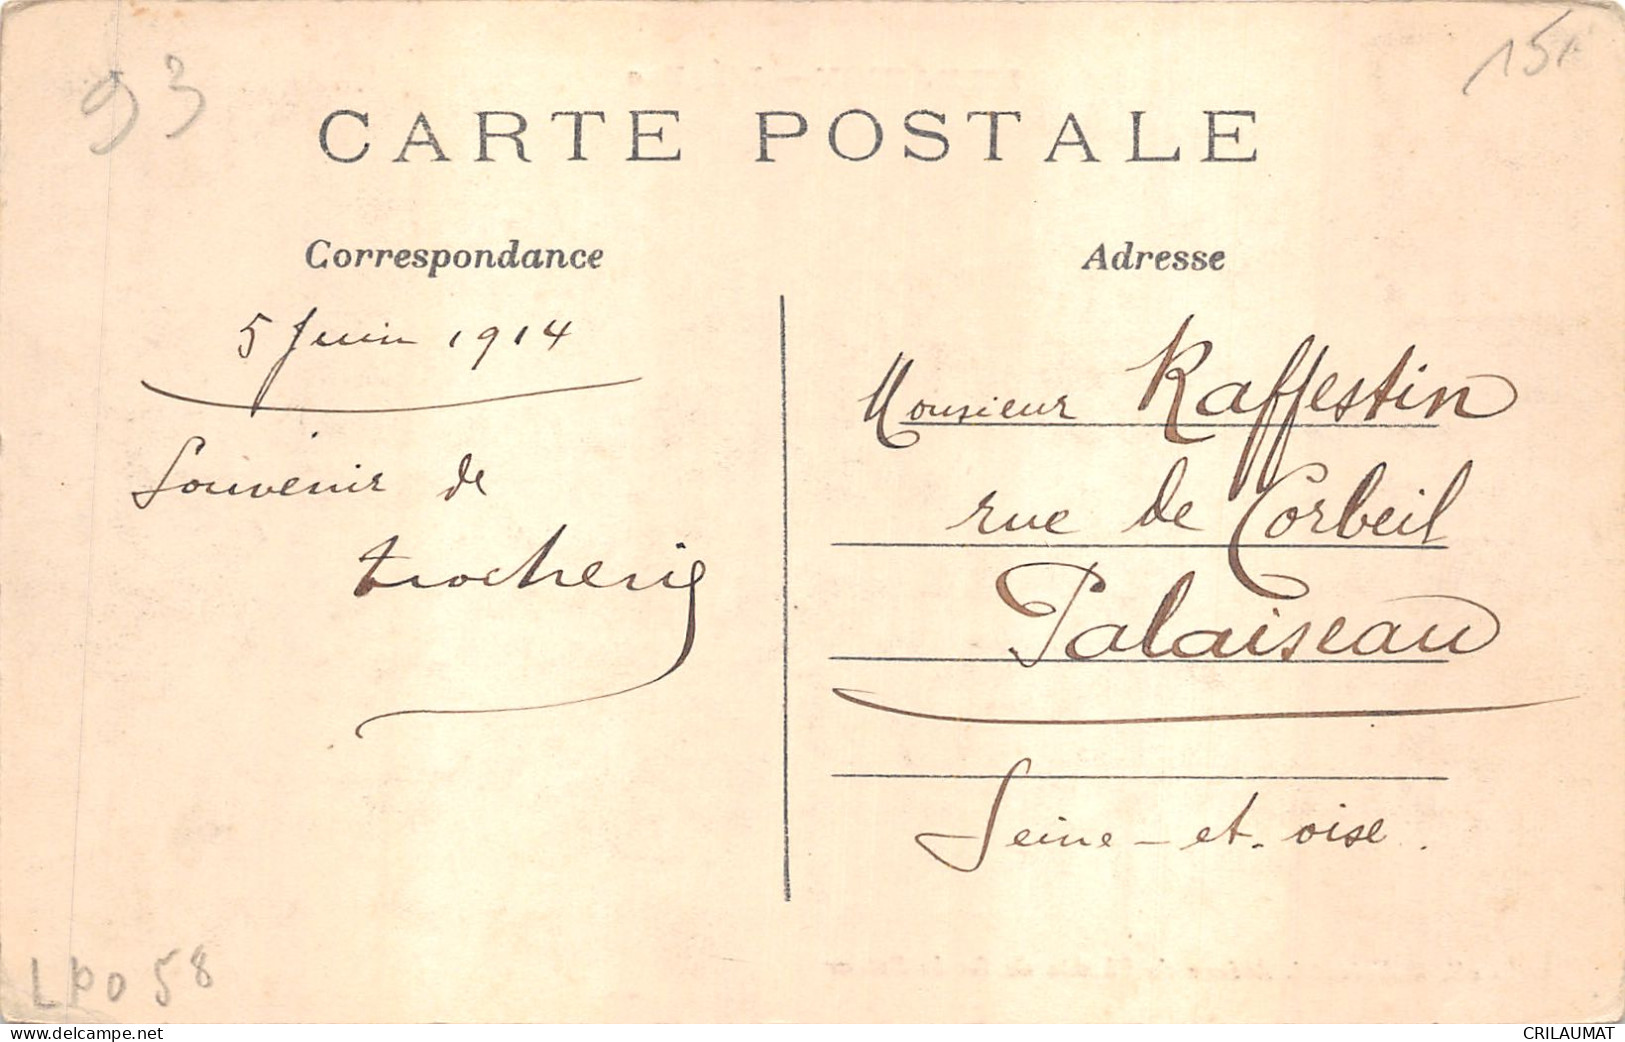 93
15
CARTE POSTALE
Correspondance
Adresse
5 Juin 1914
Souvenir de
Monsieur Raffestin
rue de Corbeil
Palaiseau
Seine-et-oise.
LPO 58
www.delcampe.net
CRILAUMAT